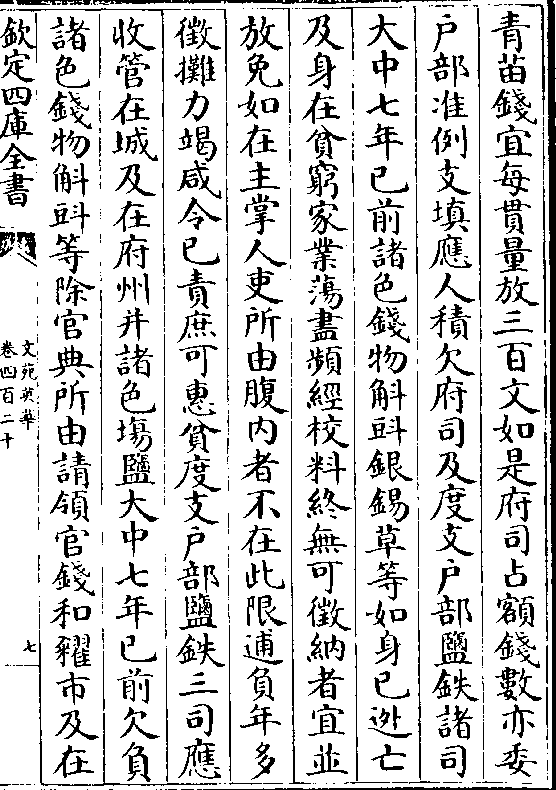 青苗錢宜每貫量放三百文如是府司占額錢數亦委
户部准例支填應人積欠府司及度支户部鹽鉄諸司
大中七年已前諸色錢物斛㪷銀錫草等如身已逃亡
及身在貧窮家業蕩盡頻經校料終無可徵納者宜並
放免如在主掌人吏所由腹内者不在此限逋負年多
徵攤力竭咸令已責庶可惠貧度支户部鹽鉄三司應
收管在城及在府州并諸色塲鹽大中七年已前欠負
諸色錢物斛㪷等除官典所由請領官錢和糴市及在
欽定四庫全書
文苑英華
卷四百二十
七